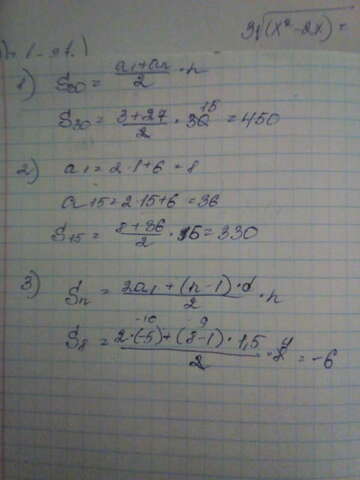 3√(x²-2x) =
1) S₃₀ = (a₁+aₙ)/2 · n
S₃₀ = (3+27)/2 · 30 15 = 450
2) a₁ = 2·1+6 = 8
a₁₅ = 2·15+6 = 36
S₁₅ = (8+36)/2 · 15 = 330
3) Sₙ = (2a₁+(n-1)·d)/2 · n
-10 9 4
S₈ = (2·(-5)+(8-1)·1,5)/2 · 8 = -6